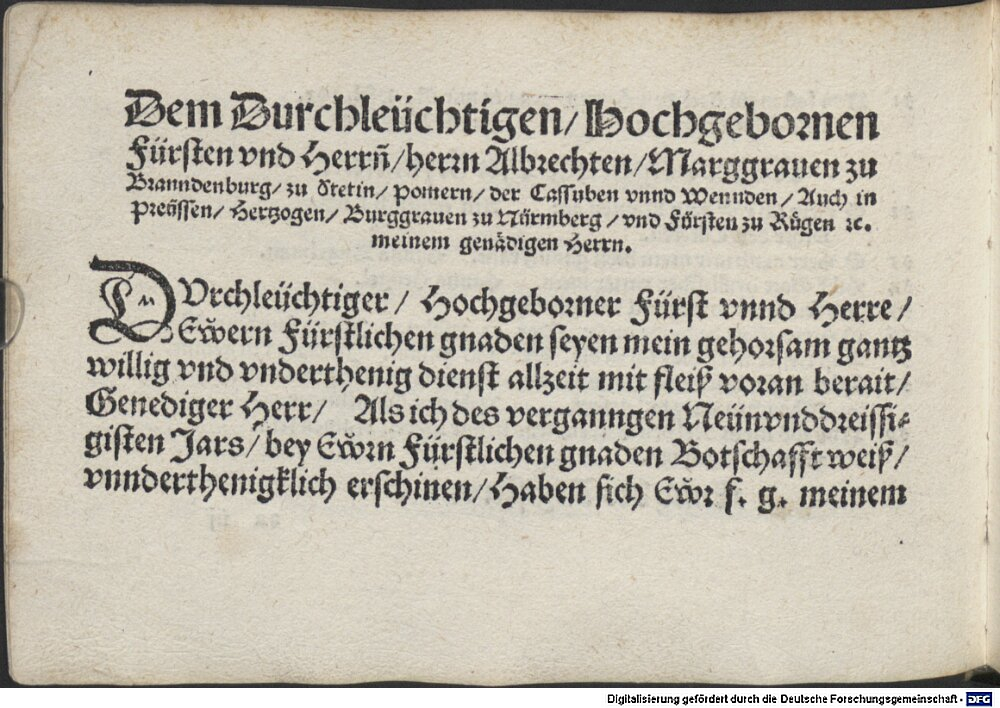 Dem Durchleüchtigen/ Hochgebornen
Fürsten vnd Herrñ/ herrn Albrechten/ Marggrauen zu
Branndenburg/ zu Stetin/ Pomern/ der Cassuben vnnd Wennden/ Auch in
Preüssen/ Hertzogen/ Burggrauen zu Nürmberg/ vnd Fürsten zu Rügen ꝛc.
meinem genädigen Herrn.
DVrchleüchtiger/ Hochgeborner Fürst vnnd Herre/
Ewͤern Fürstlichen gnaden seyen mein gehorsam gantz
willig vnd vnderthenig dienst allzeit mit fleiß voran berait/
Genediger Herr/ Als ich des verganngen Neünvnddreissi⸗
gisten Jars/ bey Ewͤrn Fürstlichen gnaden Botschafft weiß/
vnnderthenigklich erschinen/ Haben sich Ewͤr f. g. meinem
Digitalisierung gefördert durch die Deutsche Forschungsgemeinschaft - DFG